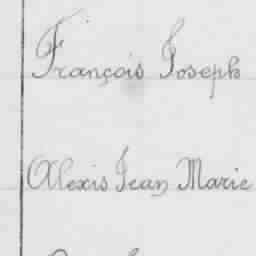 François Joseph
Alexis Jean Marie